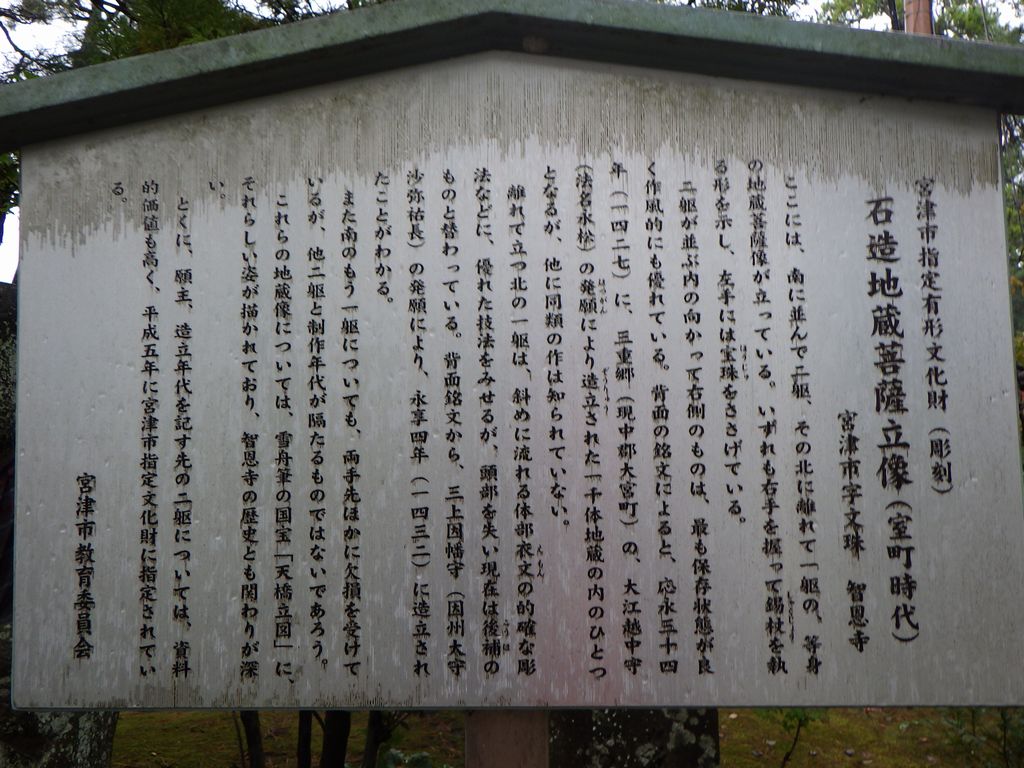 宮津市指定有形文化財（彫刻）
石造地蔵菩薩立像（室町時代）
宮津市字文珠　智恩寺
ここには、南に並んで二躯、その北に離れて一躯の、等身
の地蔵菩薩像が立っている。いずれも右手を握って錫杖を執
る形を示し、左手には宝珠をささげている。
二躯が並ぶ内の向かって右側のものは、最も保存状態が良
く作風的にも優れている。背面の銘文によると、応永三十四
年（一四二七）に、三重郷（現中郡大宮町）の、大江越中守
（法名永松）の発願により造立された一千体地蔵の内のひとつ
となるが、他に同類の作は知られていない。
離れて立つ北の一躯は、斜めに流れる体部衣文の的確な彫
法などに、優れた技法をみせるが、頭部を失い現在は後補の
ものと替わっている。背面銘文から、三上因幡守（因州太守
沙弥祐長）の発願により、永享四年（一四三二）に造立され
たことがわかる。
また南のもう一躯についても、両手先ほかに欠損を受けて
いるが、他二躯と制作年代が隔たるものではないであろう。
これらの地蔵像については、雪舟筆の国宝「天橋立図」に、
それらしい姿が描かれており、智恩寺の歴史とも関わりが深
い。
とくに、願主、造立年代を記す先の二躯については、資料
的価値も高く、平成五年に宮津市指定文化財に指定されてい
る。
宮津市教育委員会